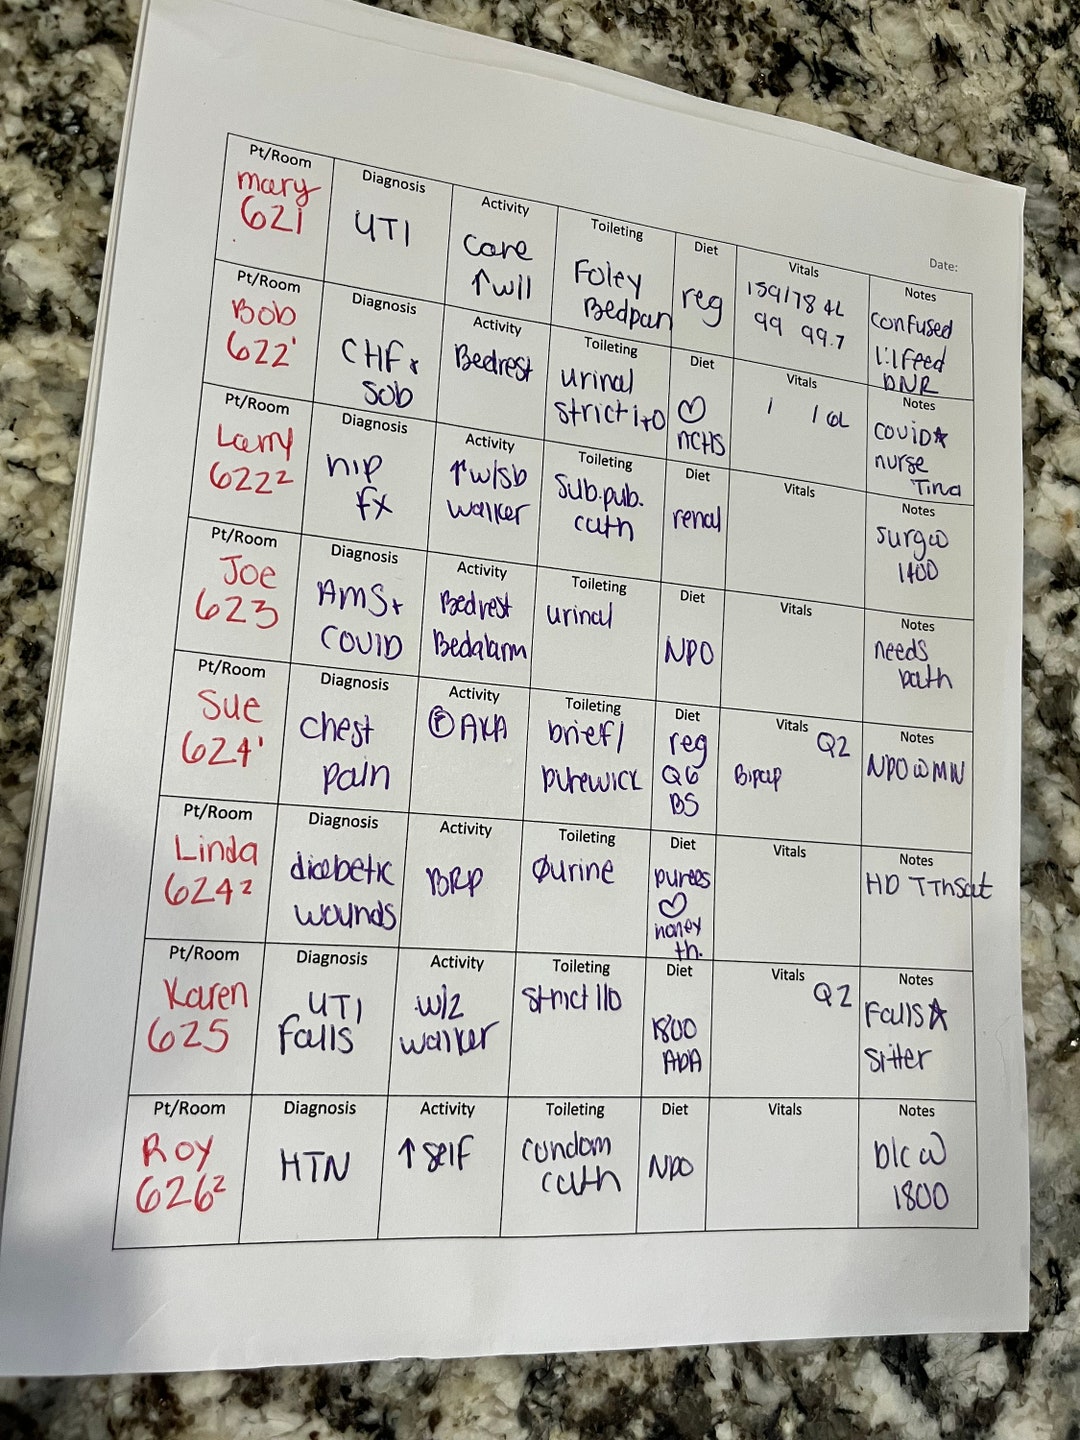 Date:
Pt/Room
Mary
621
Diagnosis
UTI
Activity
care
↑w/1
Toileting
Foley
Bedpan
Diet
reg
Vitals
159/78 4L
99 99.7
Notes
confused
1:1 feed
DNR
Pt/Room
Bob
622¹
Diagnosis
CHF+
SOB
Activity
Bedrest
Toileting
urinal
strict I+O
Diet
♡
NCHS
Vitals
/ / 6L
Notes
COVID★
nurse
Tina
Pt/Room
Larry
622²
Diagnosis
hip
fx
Activity
↑w/sb
walker
Toileting
sub.pub.
cath
Diet
renal
Vitals
Notes
surg@
1400
Pt/Room
Joe
623
Diagnosis
AMS+
COVID
Activity
Bedrest
Bedalarm
Toileting
urinal
Diet
NPO
Vitals
Notes
needs
bath
Pt/Room
Sue
624¹
Diagnosis
chest
pain
Activity
AKA
Toileting
brief/
purewick
Diet
reg
Q6
BS
Vitals
Q2
Bipap
Notes
NPO@MN
Pt/Room
Linda
624²
Diagnosis
diabetic
wounds
Activity
BRP
Toileting
Øurine
Diet
purees
♡
honey
th.
Vitals
Notes
HD TThSat
Pt/Room
Karen
625
Diagnosis
UTI
Falls
Activity
w/2
walker
Toileting
strict I/O
Diet
1800
ADA
Vitals
Q2
Notes
Falls★
sitter
Pt/Room
Roy
626²
Diagnosis
HTN
Activity
↑ self
Toileting
condom
cath
Diet
NPO
Vitals
Notes
D/C @
1800